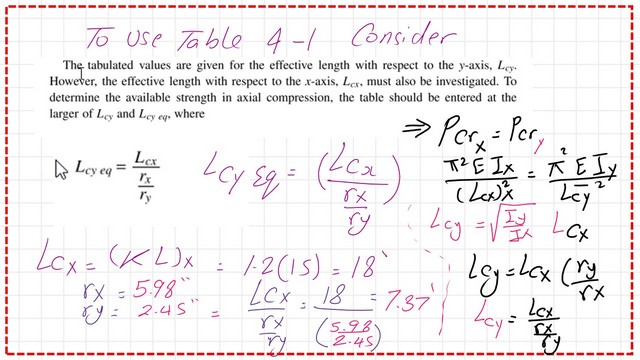 To use Table 4-1 Consider
The tabulated values are given for the effective length with respect to the y-axis, Lcy.
However, the effective length with respect to the x-axis, Lcx, must also be investigated. To
determine the available strength in axial compression, the table should be entered at the
larger of Lcy and Lcy eq, where
Lcy eq = Lcx / (rx / ry)
Lcy Eq = (Lcx / (rx / ry))
⇒ Pcrx = Pcry
π² E Ix / (Lcx)²x = π² E Iy / Lcy²
Lcy = √(Iy / Ix) Lcx
Lcy = Lcx (ry / rx
Lcy = Lcx / (rx / ry)
Lcx = (KL)x = 1.2(15) = 18'
rx = 5.98"
ry = 2.45"
= Lcx / (rx / ry) = 18 / (5.98 / 2.45) = 7.37'